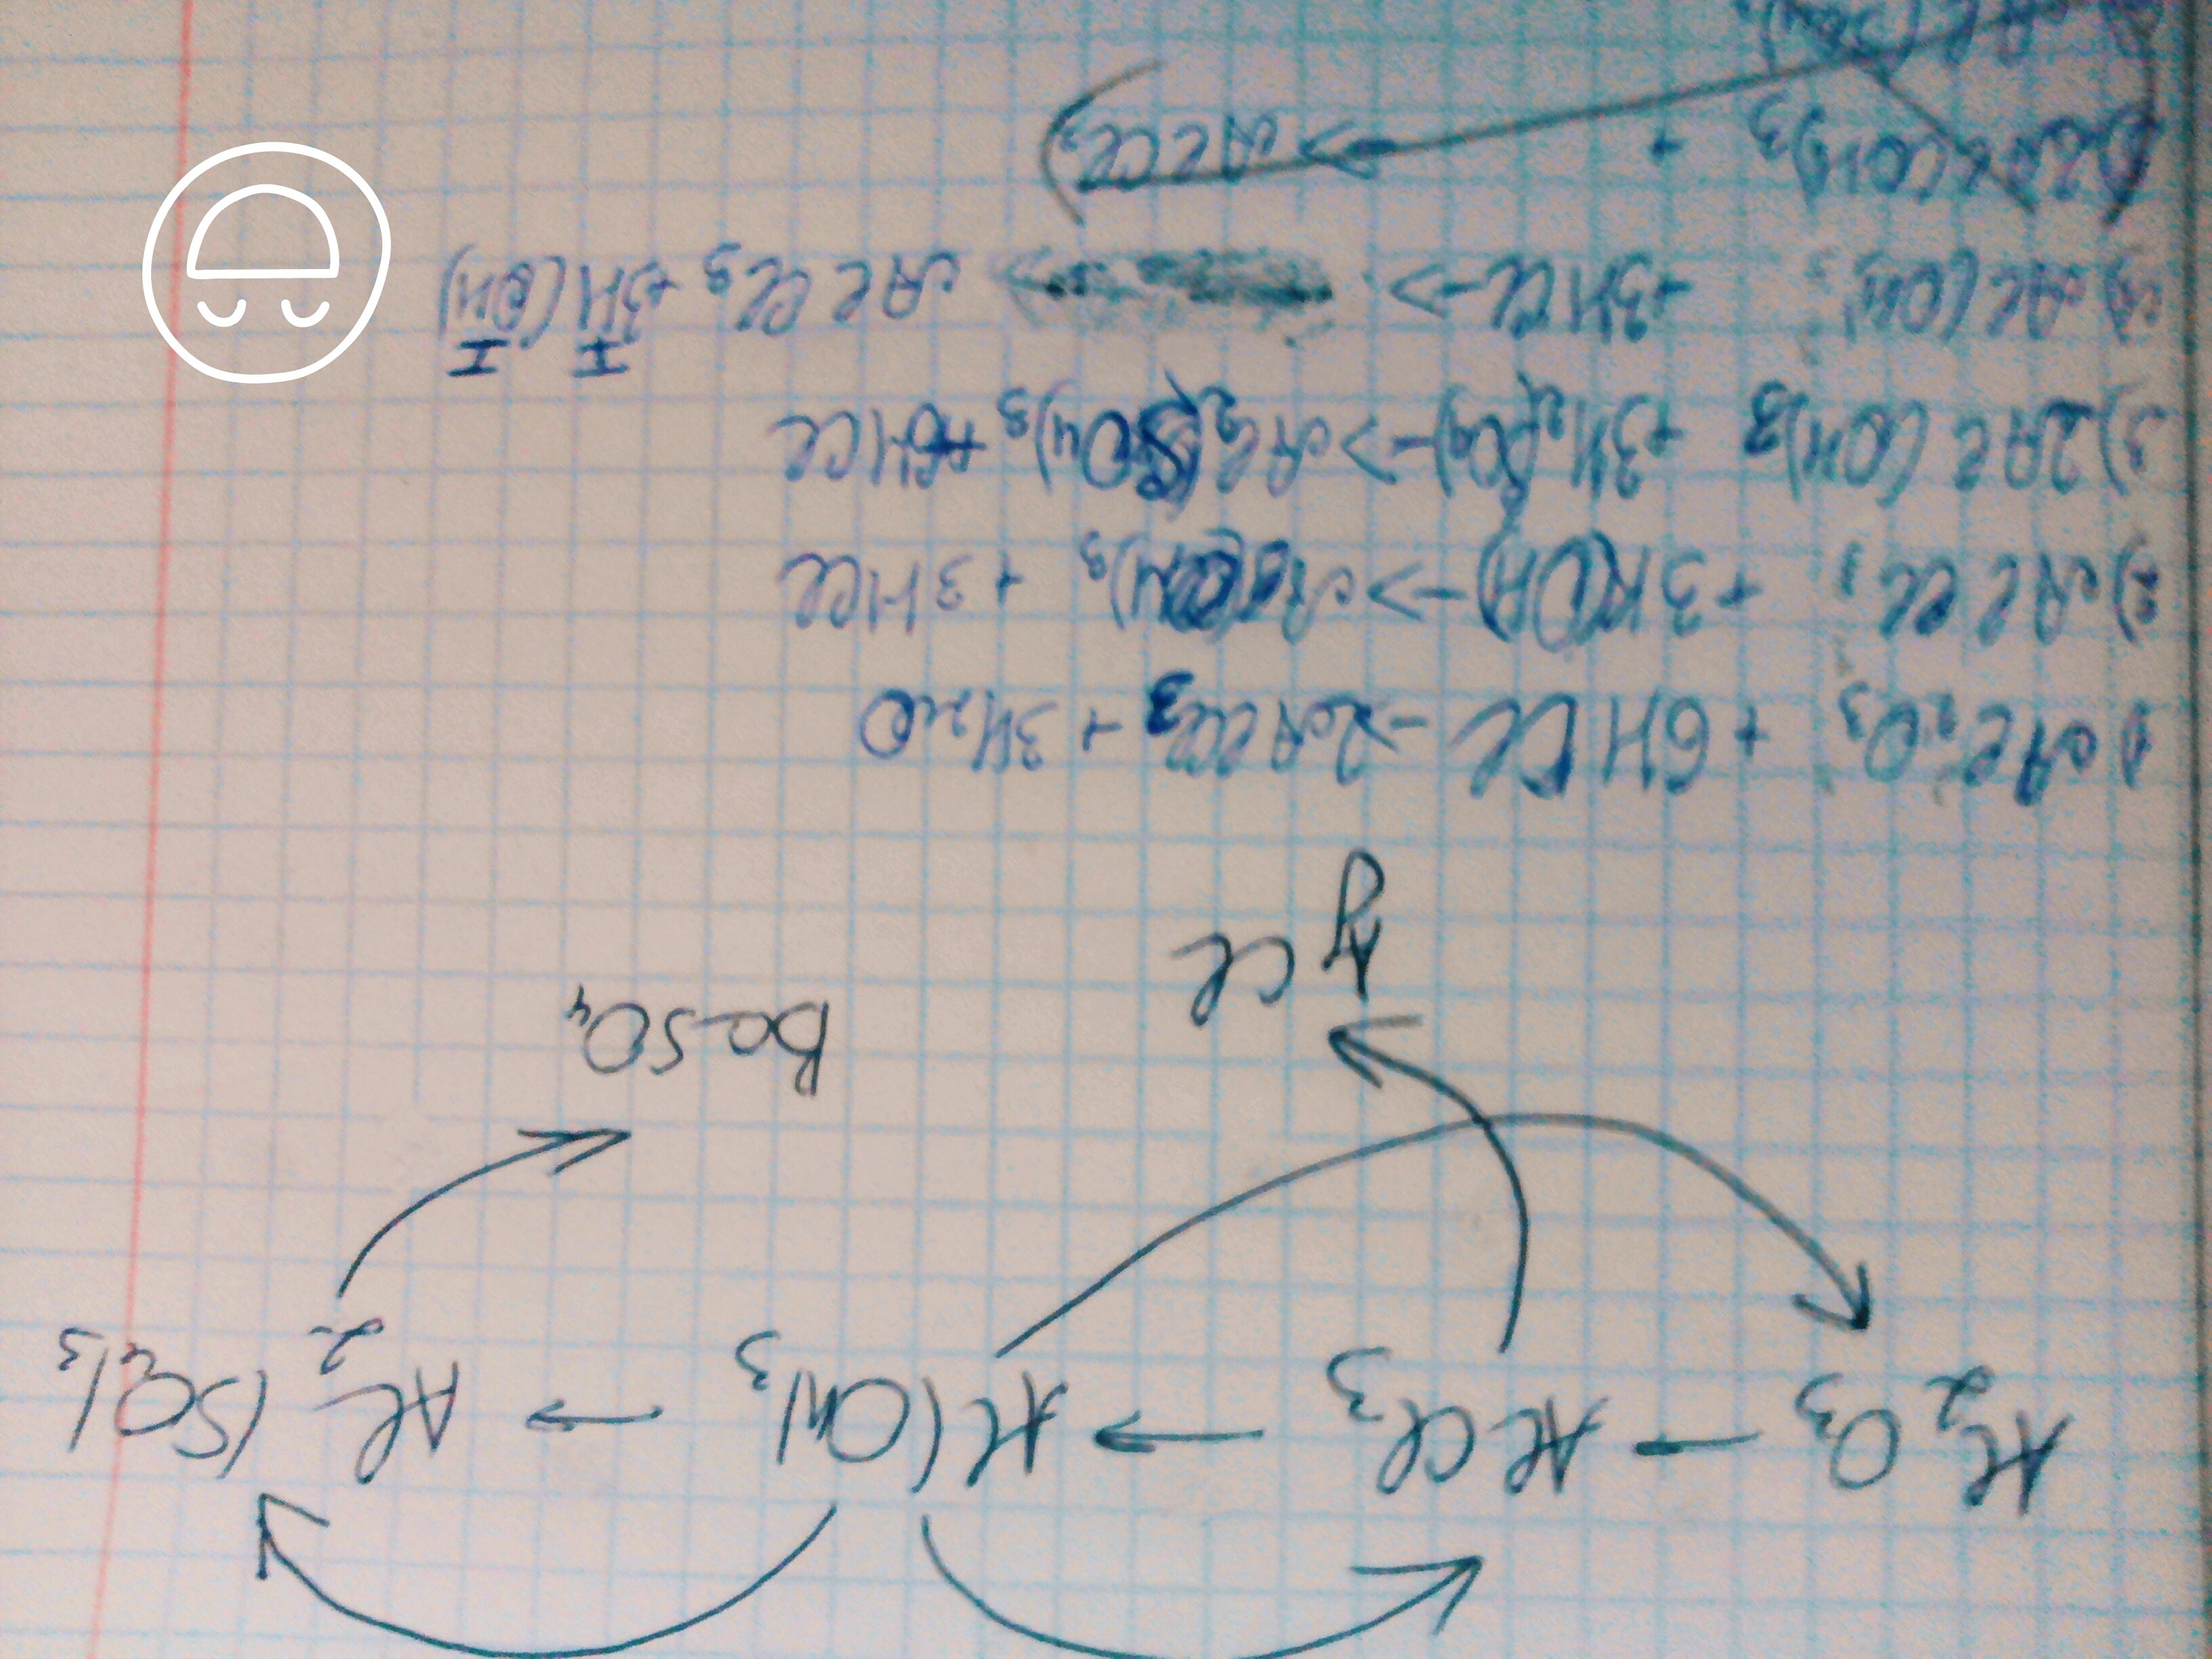 Al2O3 → AlCl3 → Al(OH)3 → Al2(SO4)3
AgCl
BaSO4
1) Al2O3 + 6HCl → 2AlCl3 + 3H2O
2) AlCl3 + 3K(OH) → Al(OH)3 + 3HCl
3) 2Al(OH)3 + 3H2(SO4) → Al2(SO4)3 + 6HCl
4) Al(OH)3 + 3HCl → → AlCl3 + 3H(OH)
I I
Al(OH)3 + → AlCl3